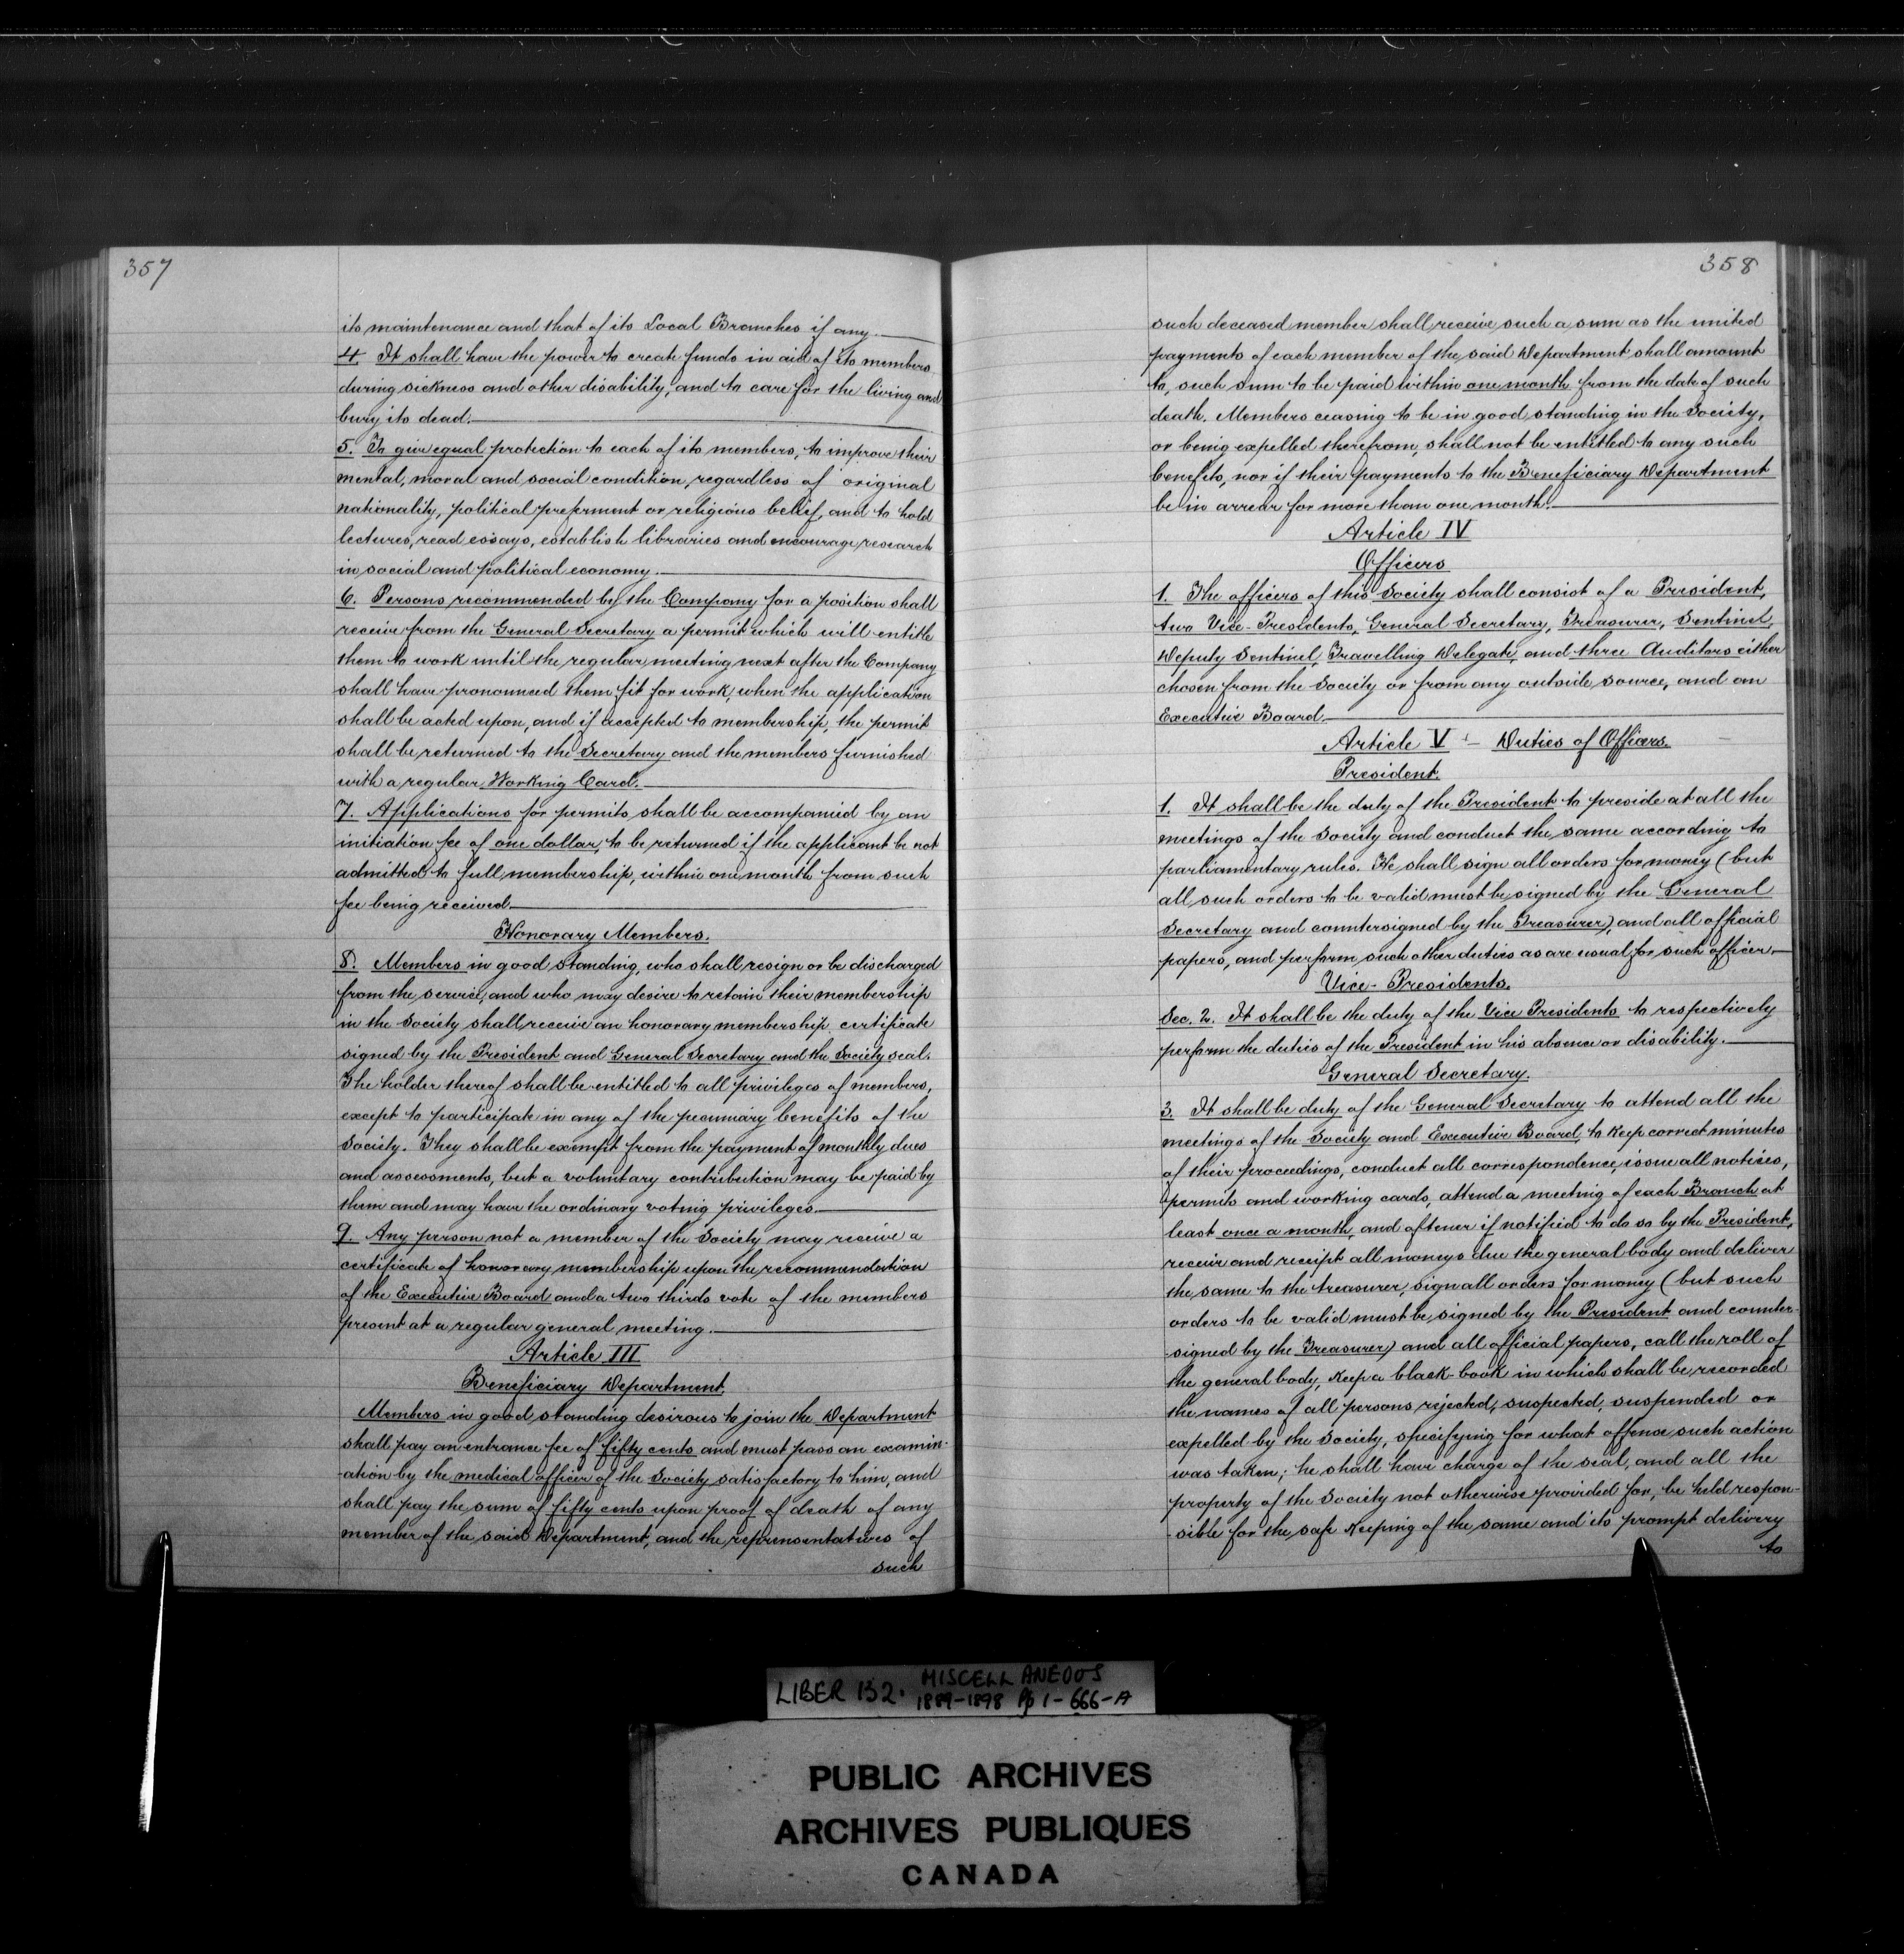 357
its maintenance and that of its Local Branches if any.
4. It shall have the power to create funds in aid of its members
during sickness and other disability, and to care for the living and
bury its dead.
5. To give equal protection to each of its members, to improve their
mental, moral and social condition, regardless of original
nationality, political preferment or religious belief, and to hold
lectures, read essays, establish libraries and encourage research
in social and political economy.
6. Persons recommended by the Company for a position shall
receive from the General Secretary a permit which will entitle
them to work until the regular meeting next after the Company
shall have pronounced them fit for work, when the application
shall be acted upon, and if accepted to membership, the permit
shall be returned to the Secretary and the members furnished
with a regular Working Card.
7. Applications for permits shall be accompanied by an
initiation fee of one dollar, to be returned if the applicant be not
admitted to full membership, within one month from such
fee being received.
Honorary Members.
8. Members in good standing, who shall resign or be discharged
from the service, and who may desire to retain their membership
in the Society shall receive an honorary membership certificate
signed by the President and General Secretary and the Society seal.
The holder thereof shall be entitled to all privileges of members,
except to participate in any of the pecuniary benefits of the
Society. They shall be exempt from the payment of monthly dues
and assessments, but a voluntary contribution may be paid by
them and may have the ordinary voting privileges.
9. Any person not a member of the Society may receive a
certificate of honorary membership upon the recommendation
of the Executive Board and a two thirds vote of the members
present at a regular general meeting.
Article III
Beneficiary Department.
Members in good standing desirous to join the Department
shall pay an entrance fee of fifty cents and must pass an examin-
ation by the medical officer of the Society satisfactory to him, and
shall pay the sum of fifty cents upon proof of death of any
member of the said Department, and the representatives of
such
358
such deceased member shall receive such a sum as the united
payments of each member of the said Department shall amount
to, such sum to be paid within one month from the date of such
death. Members ceasing to be in good standing in the Society,
or being expelled therefrom, shall not be entitled to any such
benefits, nor if their payments to the Beneficiary Department
be in arrear for more than one month.
Article IV
Officers
1. The officers of this Society shall consist of a President,
two Vice-Presidents, General Secretary, Treasurer, Sentinel,
Deputy Sentinel, Travelling Delegate, and three Auditors either
chosen from the Society or from any outside source, and an
Executive Board.
Article V - Duties of Officers.
President.
1. It shall be the duty of the President to preside at all the
meetings of the Society and conduct the same according to
parliamentary rules. He shall sign all orders for money (but
all such orders to be valid must be signed by the General
Secretary and countersigned by the Treasurer), and all official
papers, and perform such other duties as are usual for such officer.
Vice-Presidents.
Sec. 2. It shall be the duty of the Vice Presidents to respectively
perform the duties of the President in his absence or disability.
General Secretary.
3. It shall be duty of the General Secretary to attend all the
meetings of the Society and Executive Board, to keep correct minutes
of their proceedings, conduct all correspondence, issue all notices,
permits and working cards, attend a meeting of each Branch at
least once a month, and oftener if notified to do so by the President,
receive and receipt all moneys due the general body and deliver
the same to the treasurer, sign all orders for money (but such
orders to be valid must be signed by the President and counter-
signed by the Treasurer) and all official papers, call the roll of
the general body, keep a black-book in which shall be recorded
the names of all persons rejected, suspected, suspended or
expelled by the Society, specifying for what offense such action
was taken; he shall have charge of the seal, and all the
property of the Society not otherwise provided for, be held respon-
-sible for the safe keeping of the same and its prompt delivery
to
LIBER 132. MISCELLANEOUS
1889-1898 Pp 1-666-A
PUBLIC ARCHIVES
ARCHIVES PUBLIQUES
CANADA